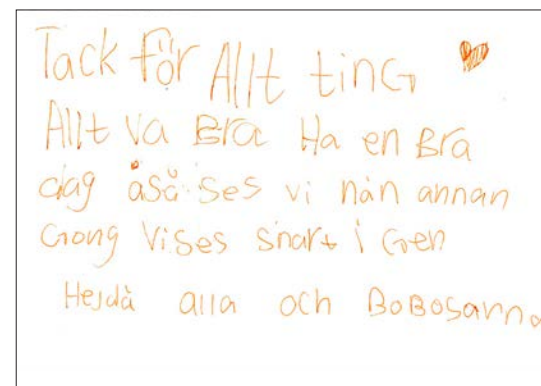 Tack för Allt tinG
Allt va BRa Ha en BRa
dag åså ses vi nån annan
Gong Vises snart i Gen
Hejdå alla och BoBosanna